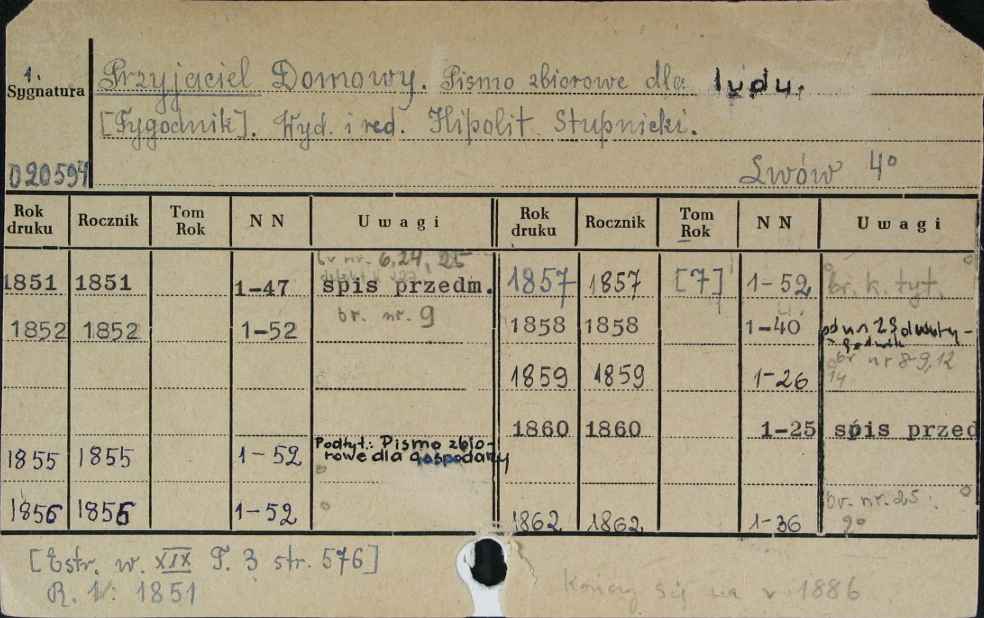 1.
Sygnatura
020594
Przyjaciel Domowy. Pismo zbiorowe dla ludu.
[Tygodnik]. Wyd. i red. Hipolit Stupnicki.
Lwów 4°
Rok druku Rocznik Tom Rok N N Uwagi Rok druku Rocznik Tom Rok N N Uwagi
br nr. 6, 24, 25
1851 1851 1-47 spis przedm. 1857 1857 [7] 1-52 br. k. tyt.
br. nr. 9
1852 1852 1-52 1858 1858 1-40 od nr 29 dwuty-
godnik
br nr 8-9, 12
14
1859 1859 1-26
1860 1860 1-25 spis przed
Podtyt.: Pismo zbio-
rowe dla gospodarzy
1855 1855 1-52
1856 1856 1-52
br. nr. 25
1862 1862 1-36
[Estr. w. XIX T. 3 str. 576]
R. 1: 1851
Kończy się na r 1886